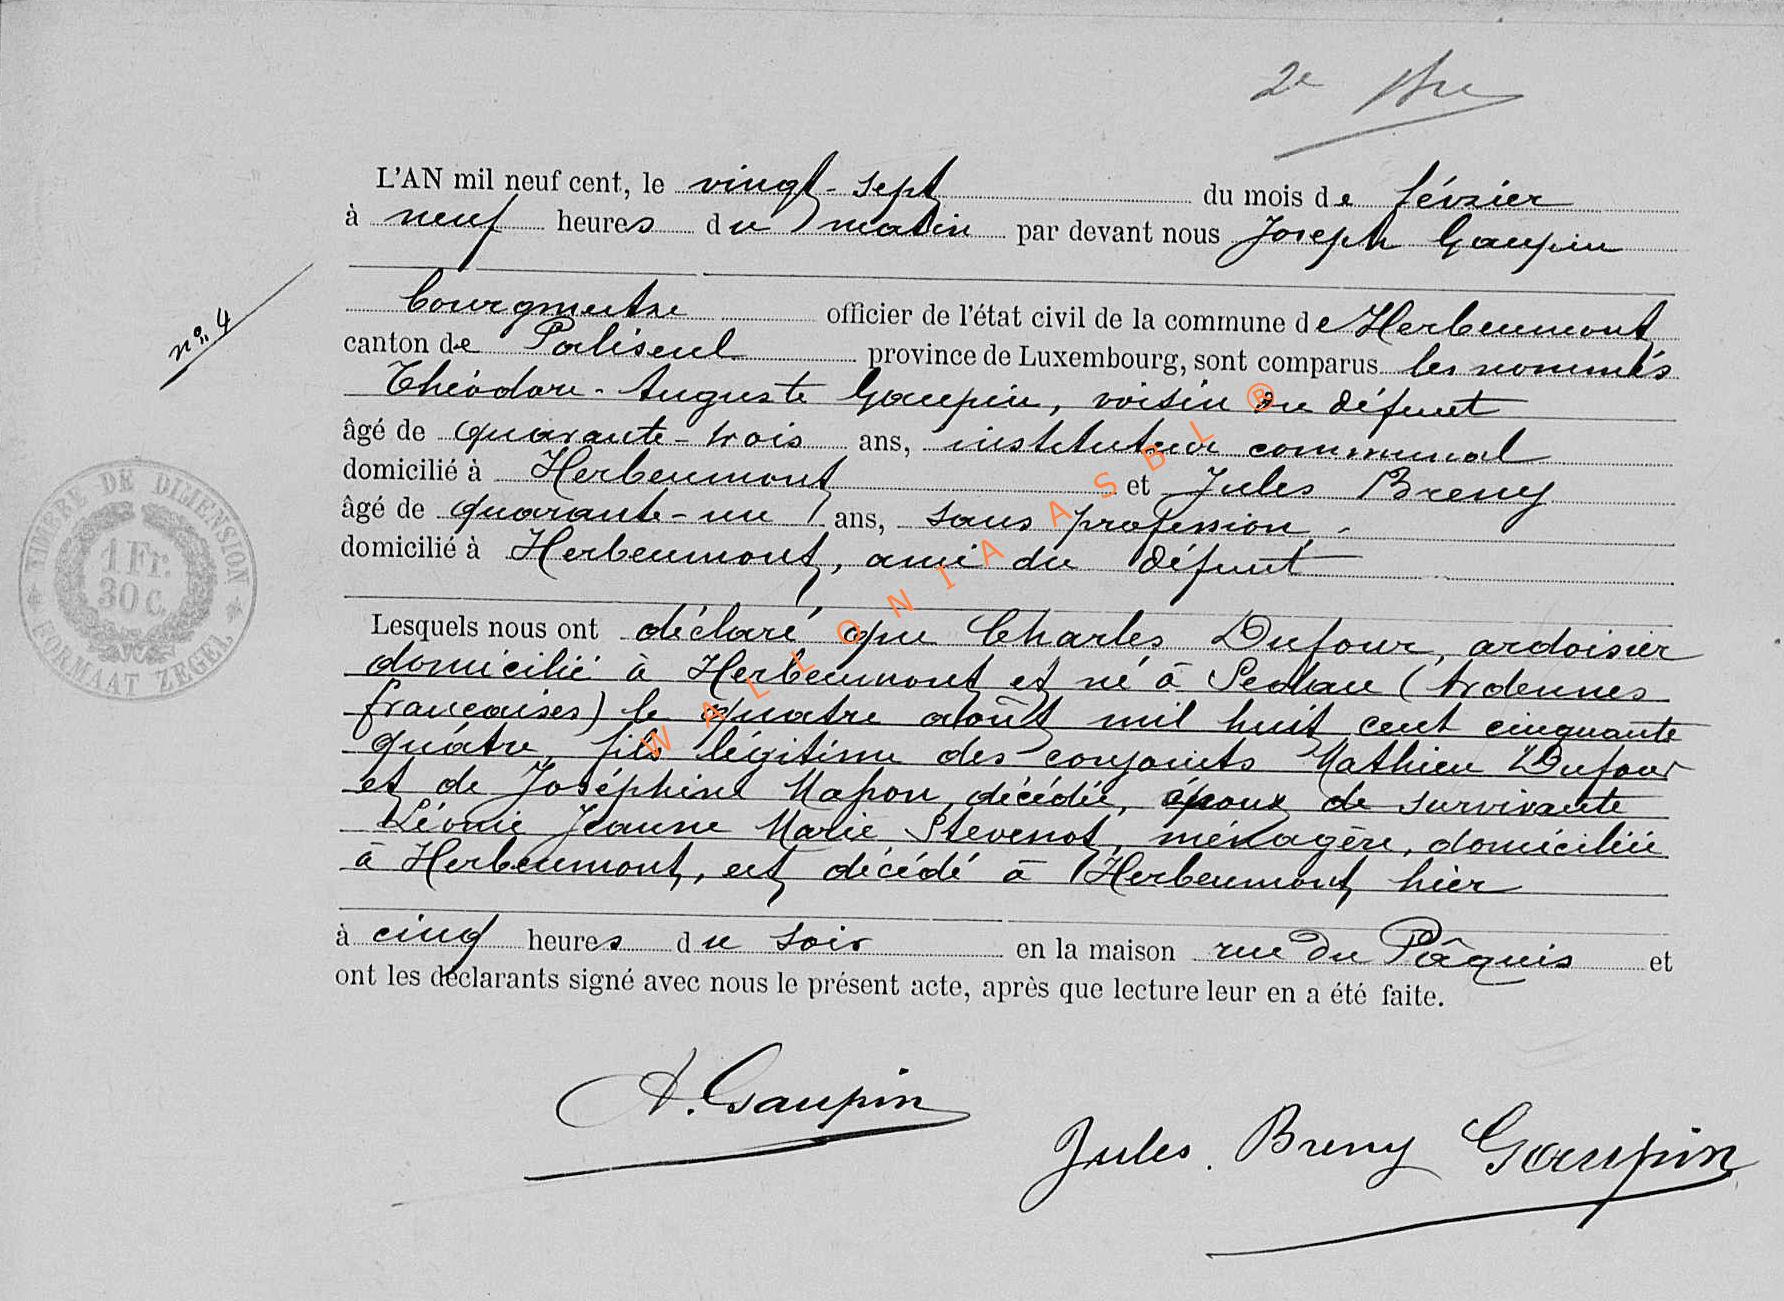 2e
L'AN mil neuf cent, le vingt-sept du mois de février
à neuf heures du matin par devant nous Joseph Gaupin
n° 4
bourgmestre officier de l'état civil de la commune de Herbeumont
canton de Paliseul province de Luxembourg, sont comparus les nommés
Théodore-Auguste Gaupin, voisin du défunt
âgé de quarante-trois ans, instituteur communal
domicilié à Herbeumont et Jules Breny
âgé de quarante-un ans, sans profession,
domicilié à Herbeumont, ami du défunt
Lesquels nous ont déclaré que Charles Dufour, ardoisier
domicilié à Herbeumont et né à Sedan (Ardennes
françaises) le quatre août mil huit cent cinquante
quatre, fils légitime des conjoints Mathieu Dufour
et de Joséphine Mapon, décédée, époux de survivante
Léonie Jeanne Marie Stevenot, ménagère, domiciliée
à Herbeumont, est décédé à Herbeumont hier
à cinq heures du soir en la maison rue du Pâquis et
ont les déclarants signé avec nous le présent acte, après que lecture leur en a été faite.
A. Gaupin
Jules Breny Gaupin
TIMBRE DE DIMENSION
1 Fr.
30 C.
FORMAAT ZEGEL
WALLONIA ASBL ®